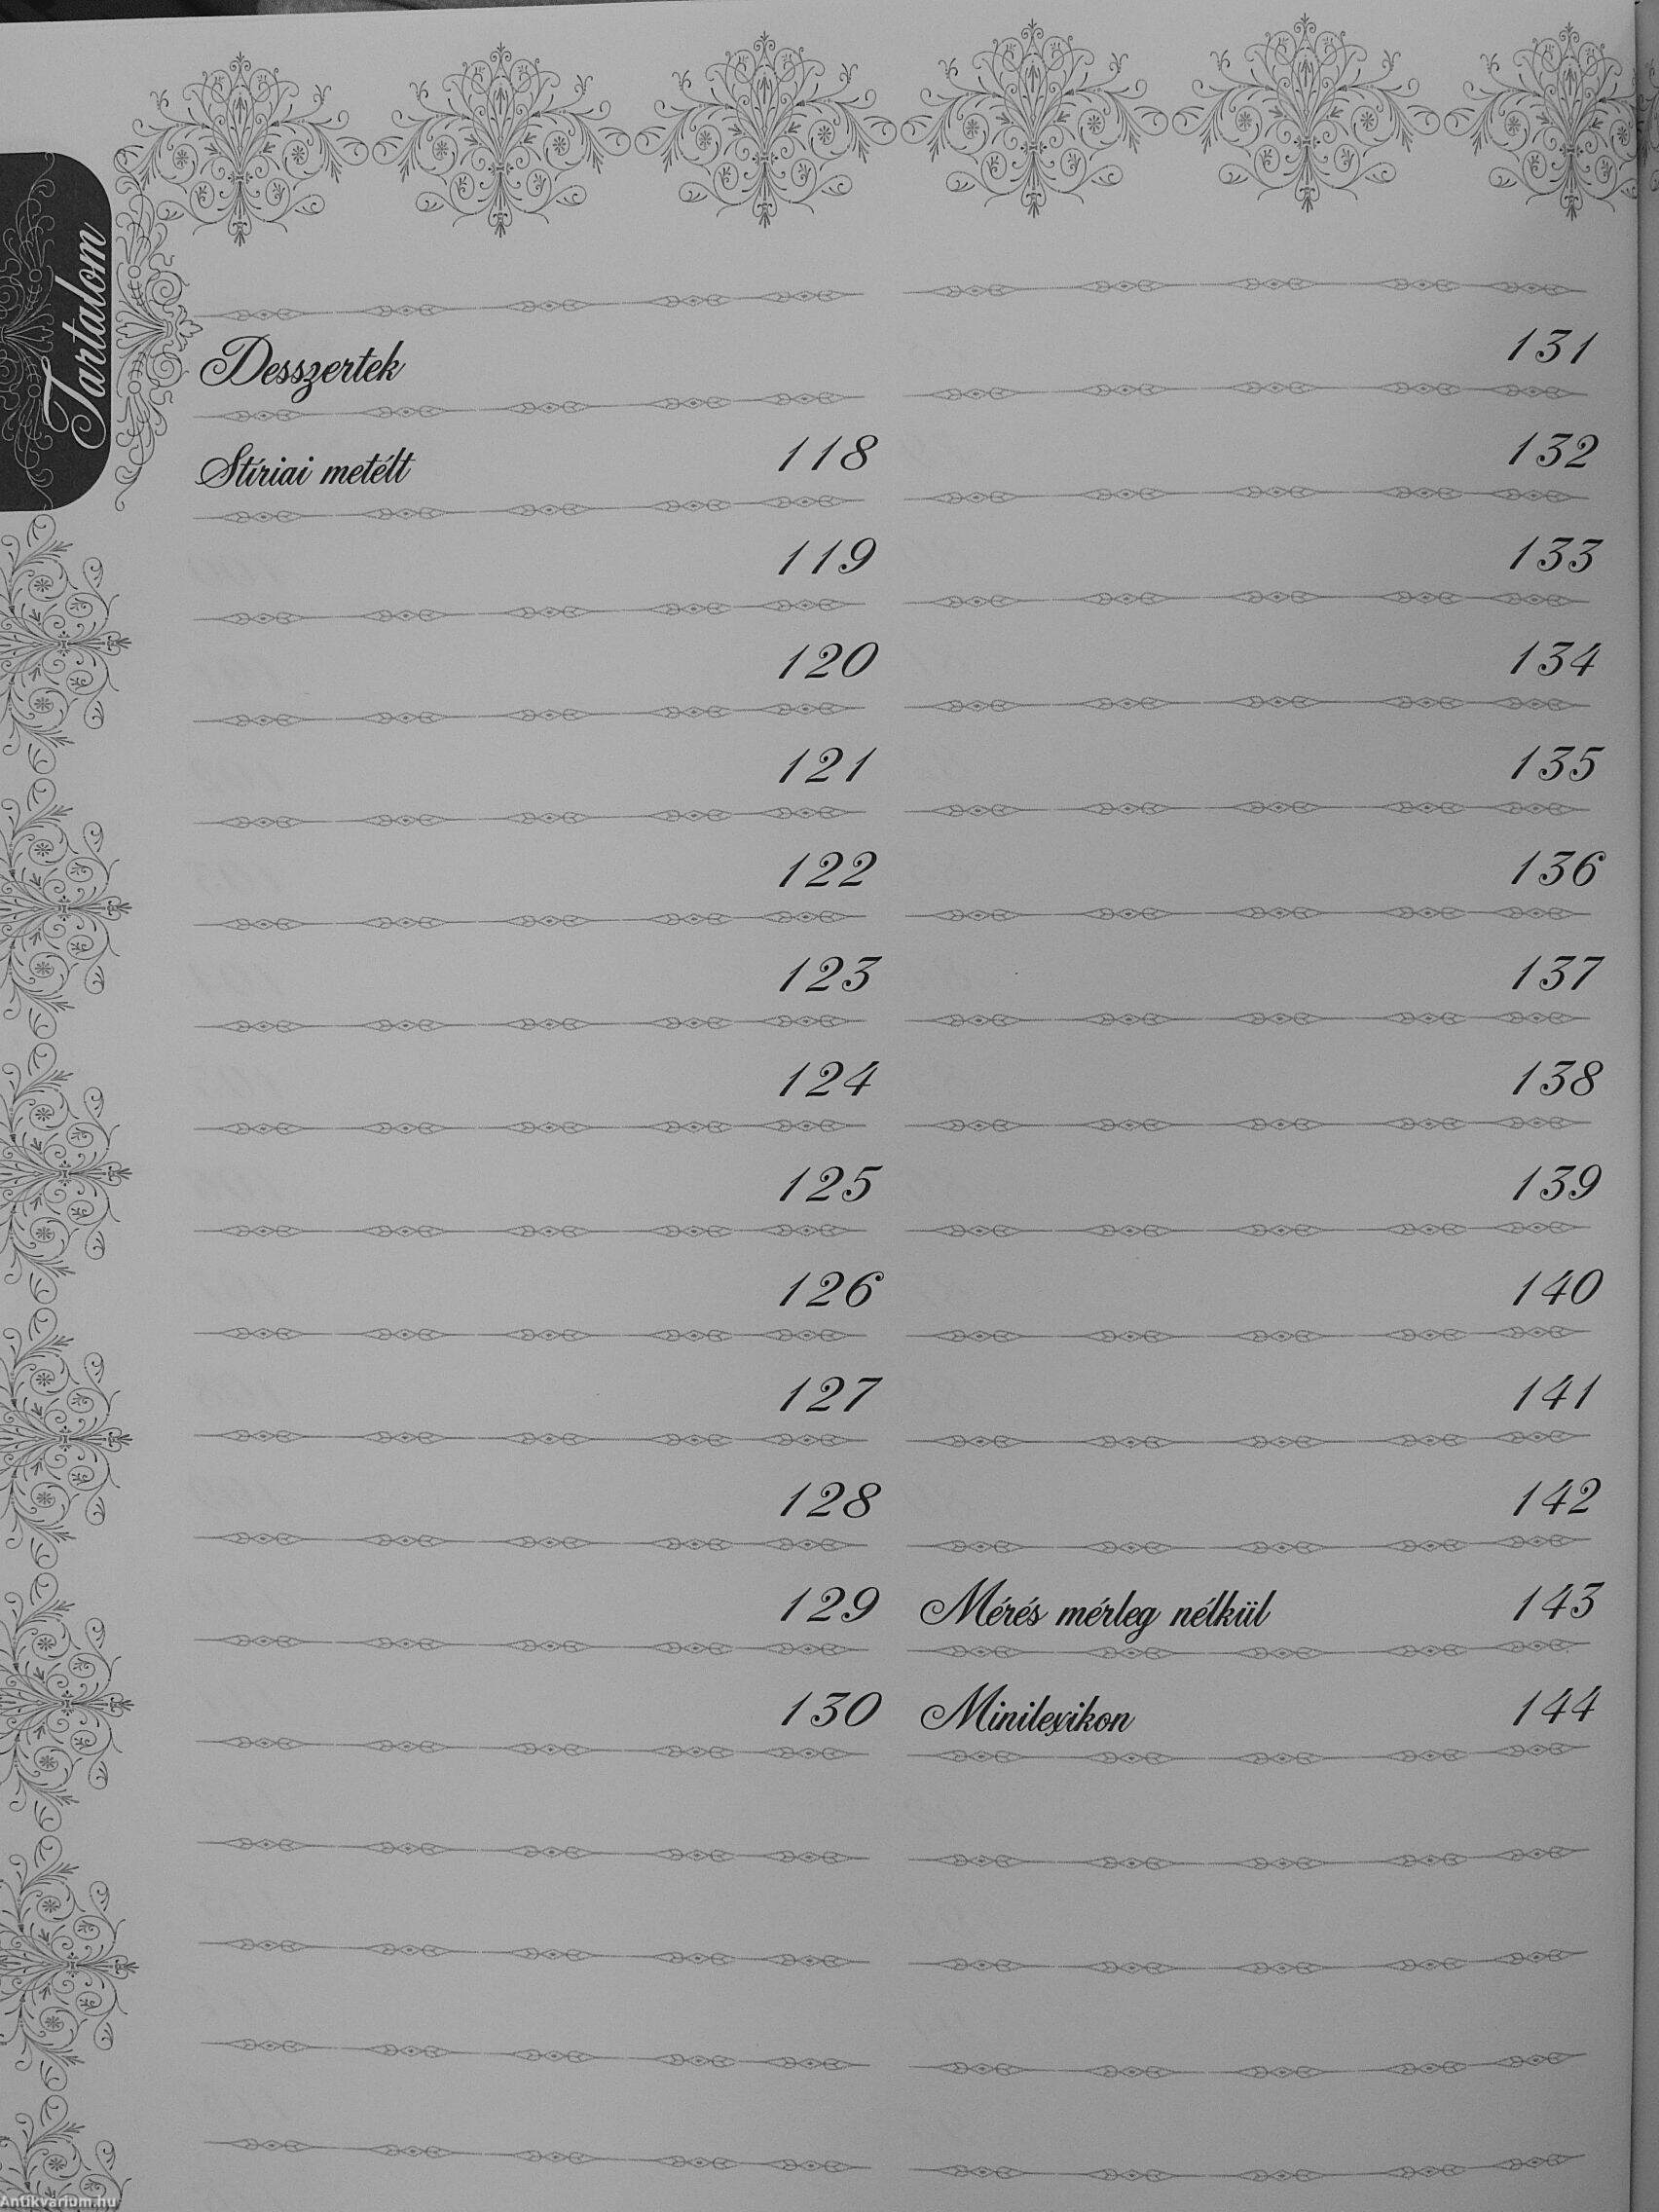 Tartalom
Desszertek
Stíriai metélt 118
119
120
121
122
123
124
125
126
127
128
129
130
131
132
133
134
135
136
137
138
139
140
141
142
Mérés mérleg nélkül 143
Minilexikon 144
Antikvarium.hu